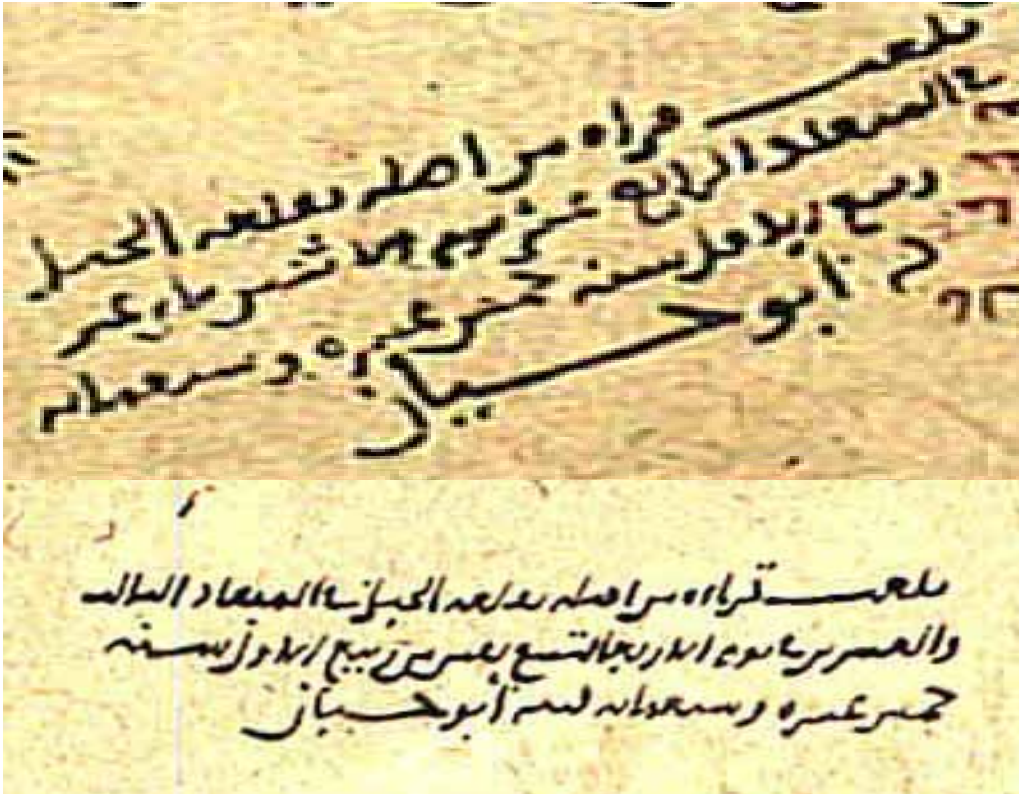 بلغت قراه من اصله بقلعه الجبل
في الميعاد الرابع عشر يوم الاثنين عشر
ربيع الاول سنه خمس عشره وسبعمايه
أبو حيان
بلغت قراءه من اصله بقلعه الجبل في الميعاد الثالث
والعشرين يوم الاربعا لتسع بقين من ربيع الاول سنه
خمس عشره وسبعمايه كتبه أبو حيان